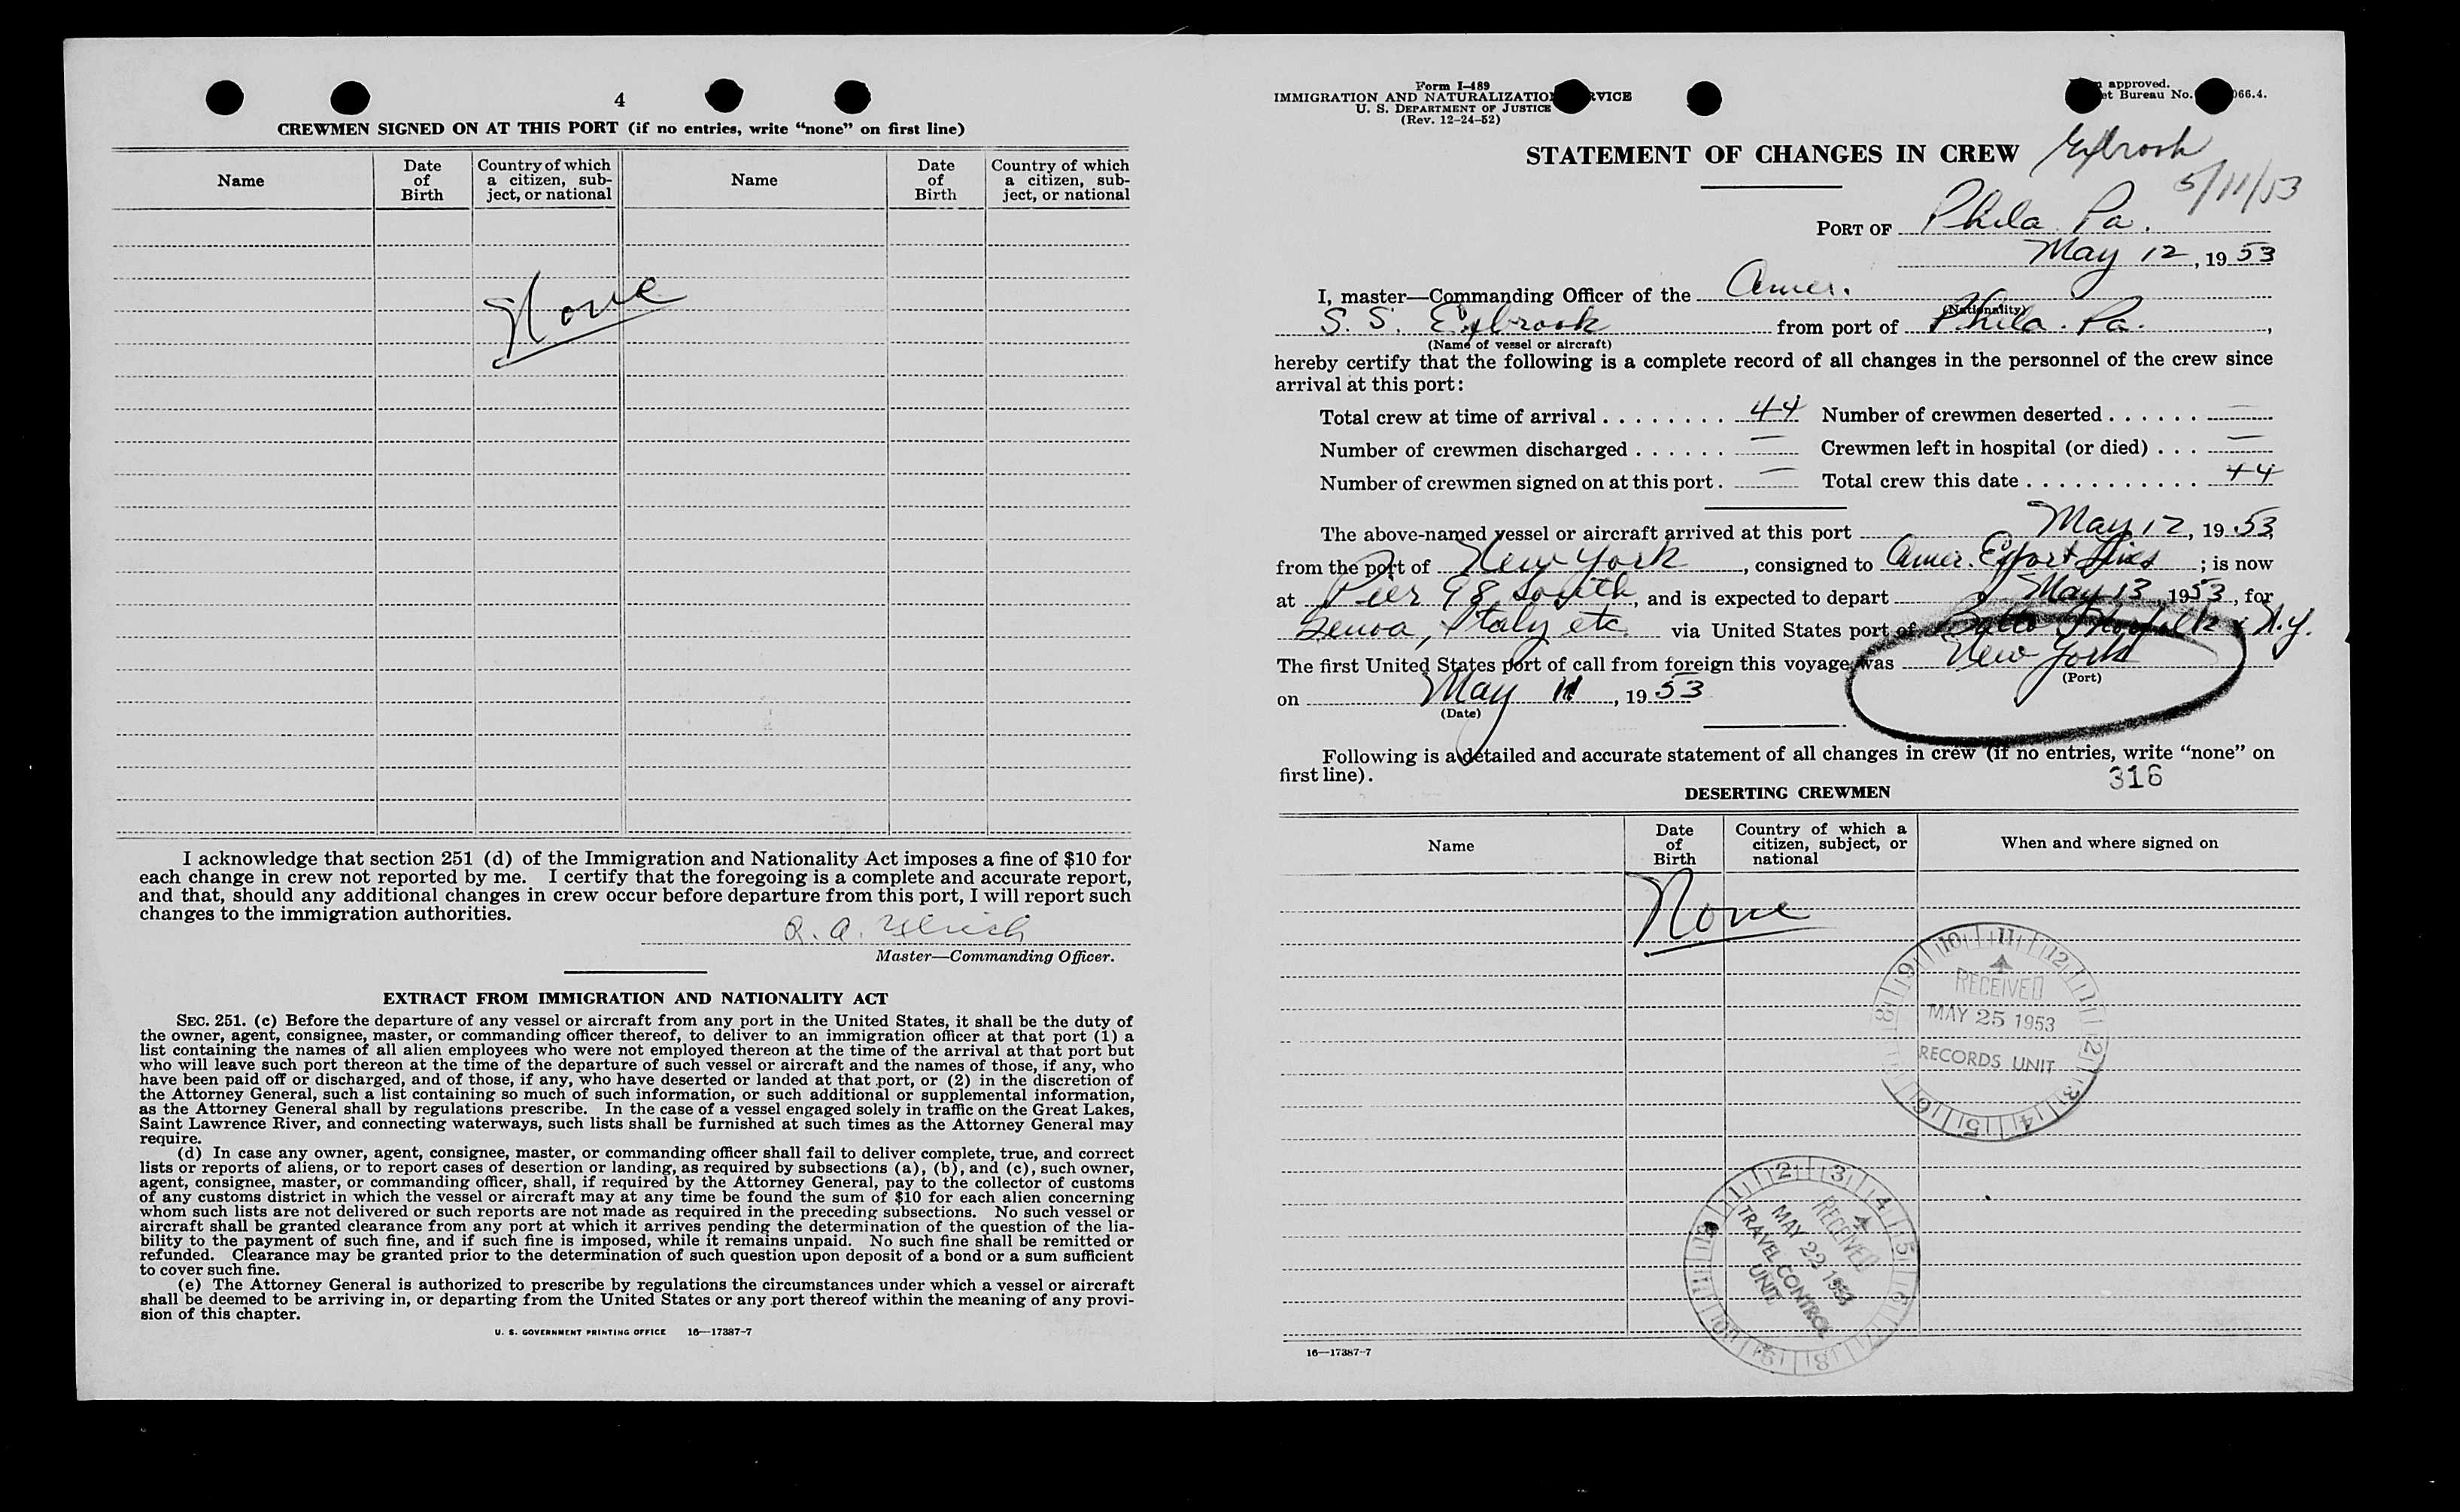 4
CREWMEN SIGNED ON AT THIS PORT (if no entries, write “none” on first line)
Name
Date of Birth
Country of which a citizen, sub-ject, or national
Name
Date of Birth
Country of which a citizen, sub-ject, or national
None
I acknowledge that section 251 (d) of the Immigration and Nationality Act imposes a fine of $10 for
each change in crew not reported by me. I certify that the foregoing is a complete and accurate report,
and that, should any additional changes in crew occur before departure from this port, I will report such
changes to the immigration authorities.
Master—Commanding Officer.
EXTRACT FROM IMMIGRATION AND NATIONALITY ACT
SEC. 251. (c) Before the departure of any vessel or aircraft from any port in the United States, it shall be the duty of
the owner, agent, consignee, master, or commanding officer thereof, to deliver to an immigration officer at that port (1) a
list containing the names of all alien employees who were not employed thereon at the time of the arrival at that port but
who will leave such port thereon at the time of the departure of such vessel or aircraft and the names of those, if any, who
have been paid off or discharged, and of those, if any, who have deserted or landed at that port, or (2) in the discretion of
the Attorney General, such a list containing so much of such information, or such additional or supplemental information,
as the Attorney General shall by regulations prescribe. In the case of a vessel engaged solely in traffic on the Great Lakes,
Saint Lawrence River, and connecting waterways, such lists shall be furnished at such times as the Attorney General may
require.
(d) In case any owner, agent, consignee, master, or commanding officer shall fail to deliver complete, true, and correct
lists or reports of aliens, or to report cases of desertion or landing, as required by subsections (a), (b), and (c), such owner,
agent, consignee, master, or commanding officer, shall, if required by the Attorney General, pay to the collector of customs
of any customs district in which the vessel or aircraft may at any time be found the sum of $10 for each alien concerning
whom such lists are not delivered or such reports are not made as required in the preceding subsections. No such vessel or
aircraft shall be granted clearance from any port at which it arrives pending the determination of the question of the lia-
bility to the payment of such fine, and if such fine is imposed, while it remains unpaid. No such fine shall be remitted or
refunded. Clearance may be granted prior to the determination of such question upon deposit of a bond or a sum sufficient
to cover such fine.
(e) The Attorney General is authorized to prescribe by regulations the circumstances under which a vessel or aircraft
shall be deemed to be arriving in, or departing from the United States or any port thereof within the meaning of any provi-
sion of this chapter.
U. S. GOVERNMENT PRINTING OFFICE 16—17387-7
Form I-489
IMMIGRATION AND NATURALIZATIO RVICE
U. S. DEPARTMENT OF JUSTICE
(Rev. 12-24-52)
approved.
et Bureau No. 066.4.
STATEMENT OF CHANGES IN CREW Exbrook
5/11/53
PORT OF Phila. Pa.
May 12, 1953
I, master—Commanding Officer of the Amer.
(Nationality)
S. S. Exbrook from port of Phila. Pa.,
(Name of vessel or aircraft)
hereby certify that the following is a complete record of all changes in the personnel of the crew since
arrival at this port:
Total crew at time of arrival . . . . . . . . 44 Number of crewmen deserted . . . . . . —
Number of crewmen discharged . . . . . . — Crewmen left in hospital (or died) . . . —
Number of crewmen signed on at this port . — Total crew this date . . . . . . . . . . . 44
The above-named vessel or aircraft arrived at this port May 12, 1953,
from the port of New York, consigned to Amer. Export Lines; is now
at Pier 98 South, and is expected to depart May 13, 1953, for
Genoa, Italy etc. via United States port of Balto Norfolk & N.Y.
The first United States port of call from foreign this voyage was New York
(Port)
on May 11, 1953
(Date)
Following is a detailed and accurate statement of all changes in crew (if no entries, write “none” on
first line).
316
DESERTING CREWMEN
Name
Date of Birth
Country of which a citizen, subject, or national
When and where signed on
None
10 11 12 1 2 3 4 5 6 8 9
RECEIVED
MAY 25 1953
RECORDS UNIT
1 2 3 4 5 6 7 8 9 10 11 12
RECEIVED
MAY 22 1953
TRAVEL CONTROL
UNIT
16—17387-7